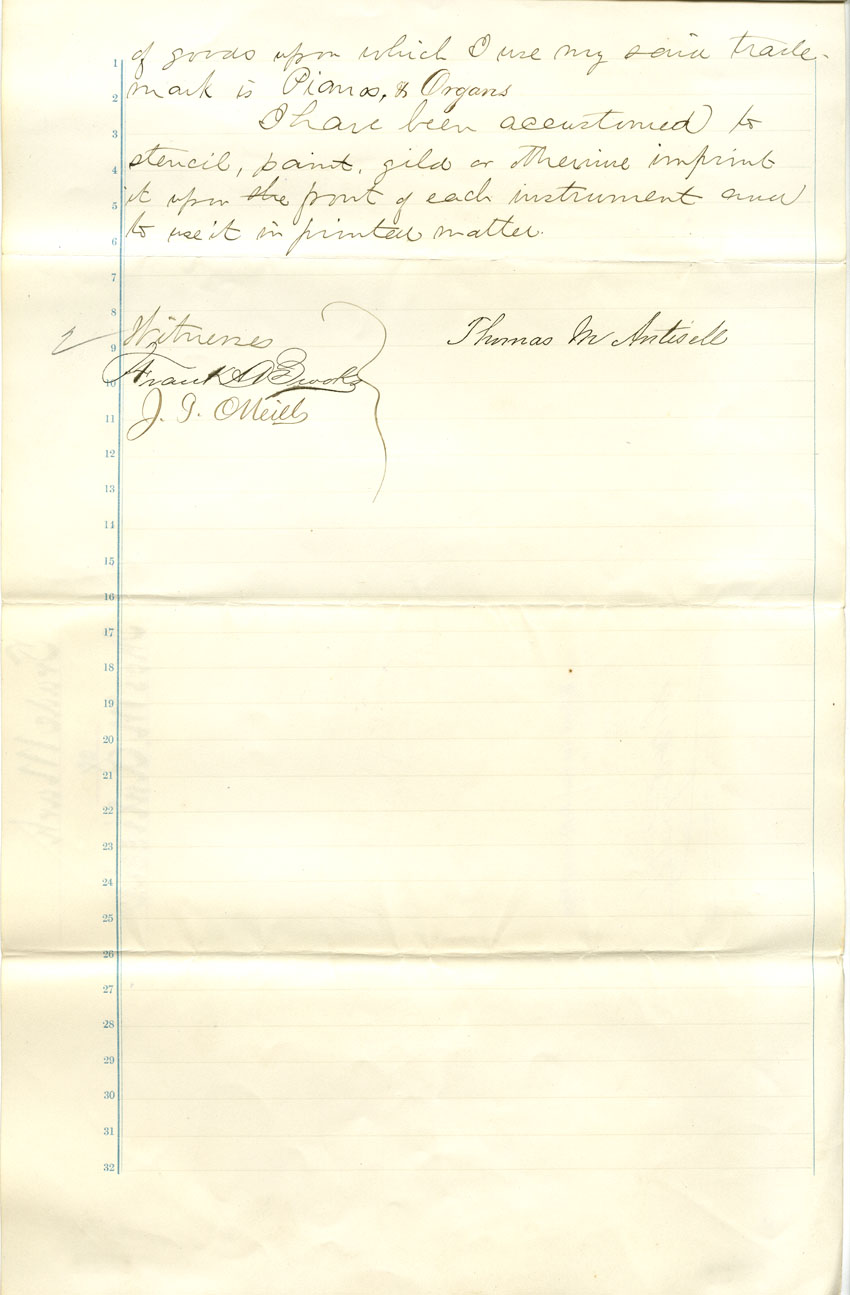 of goods upon which I use my said trade-
mark is Pianos, & Organs
I have been accustomed to
stencil, paint, gild or otherwise imprint
it upon the front of each instrument and
to use it in printed matter.
Witnesses
Thomas M Antisell
Frank A Brooks
J. J. O'Neill
1
2
3
4
5
6
7
8
9
10
11
12
13
14
15
16
17
18
19
20
21
22
23
24
25
26
27
28
29
30
31
32